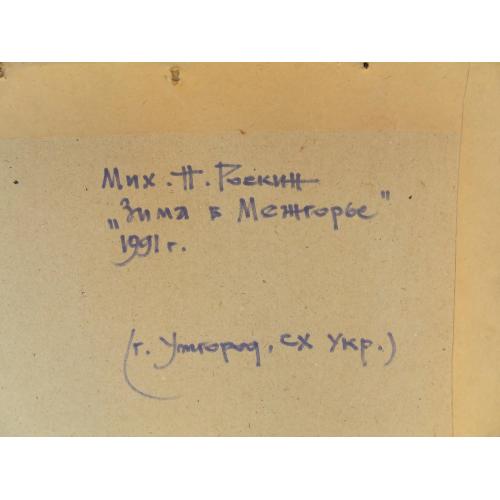 Мих. П. Роскин
"Зима в Межгорье"
1991 г.
(г. Ужгород, СХ Укр.)